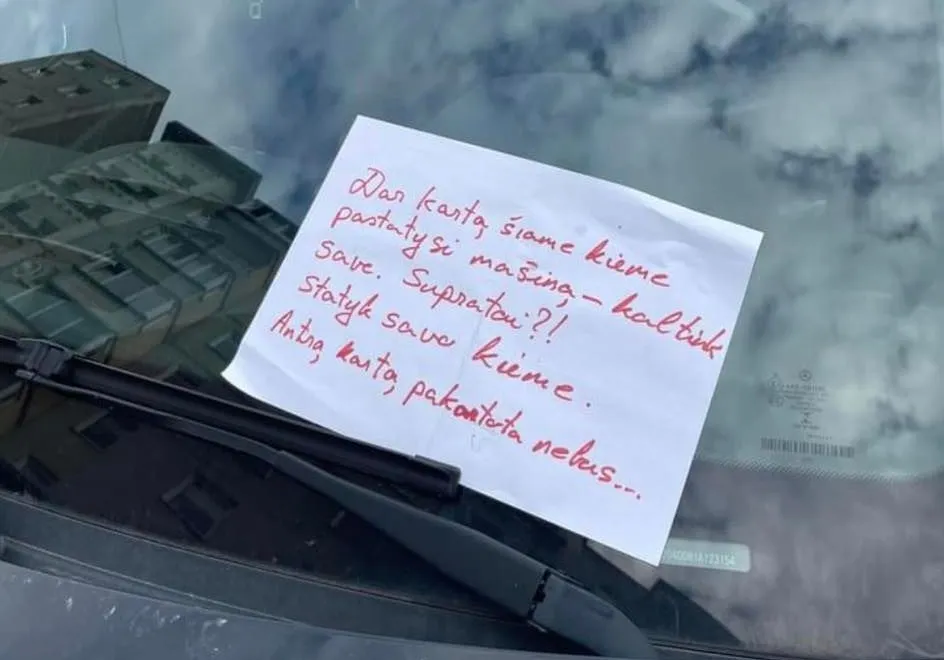 Dar kartą šiame kieme
pastatysi mašiną – kaltink
save. Supratai?!
Statyk savo kieme.
Antrą kartą pakartota nebus...